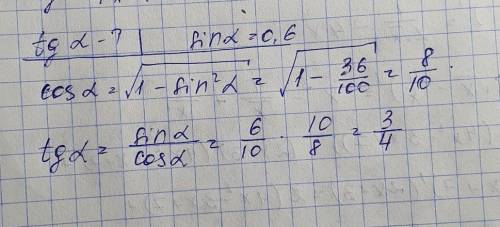 tg α - ? | sin α = 0,6
cos α = √(1 - sin² α) = √(1 - 36/100) = 8/10 .
tg α = sin α / cos α = 6/10 · 10/8 = 3/4